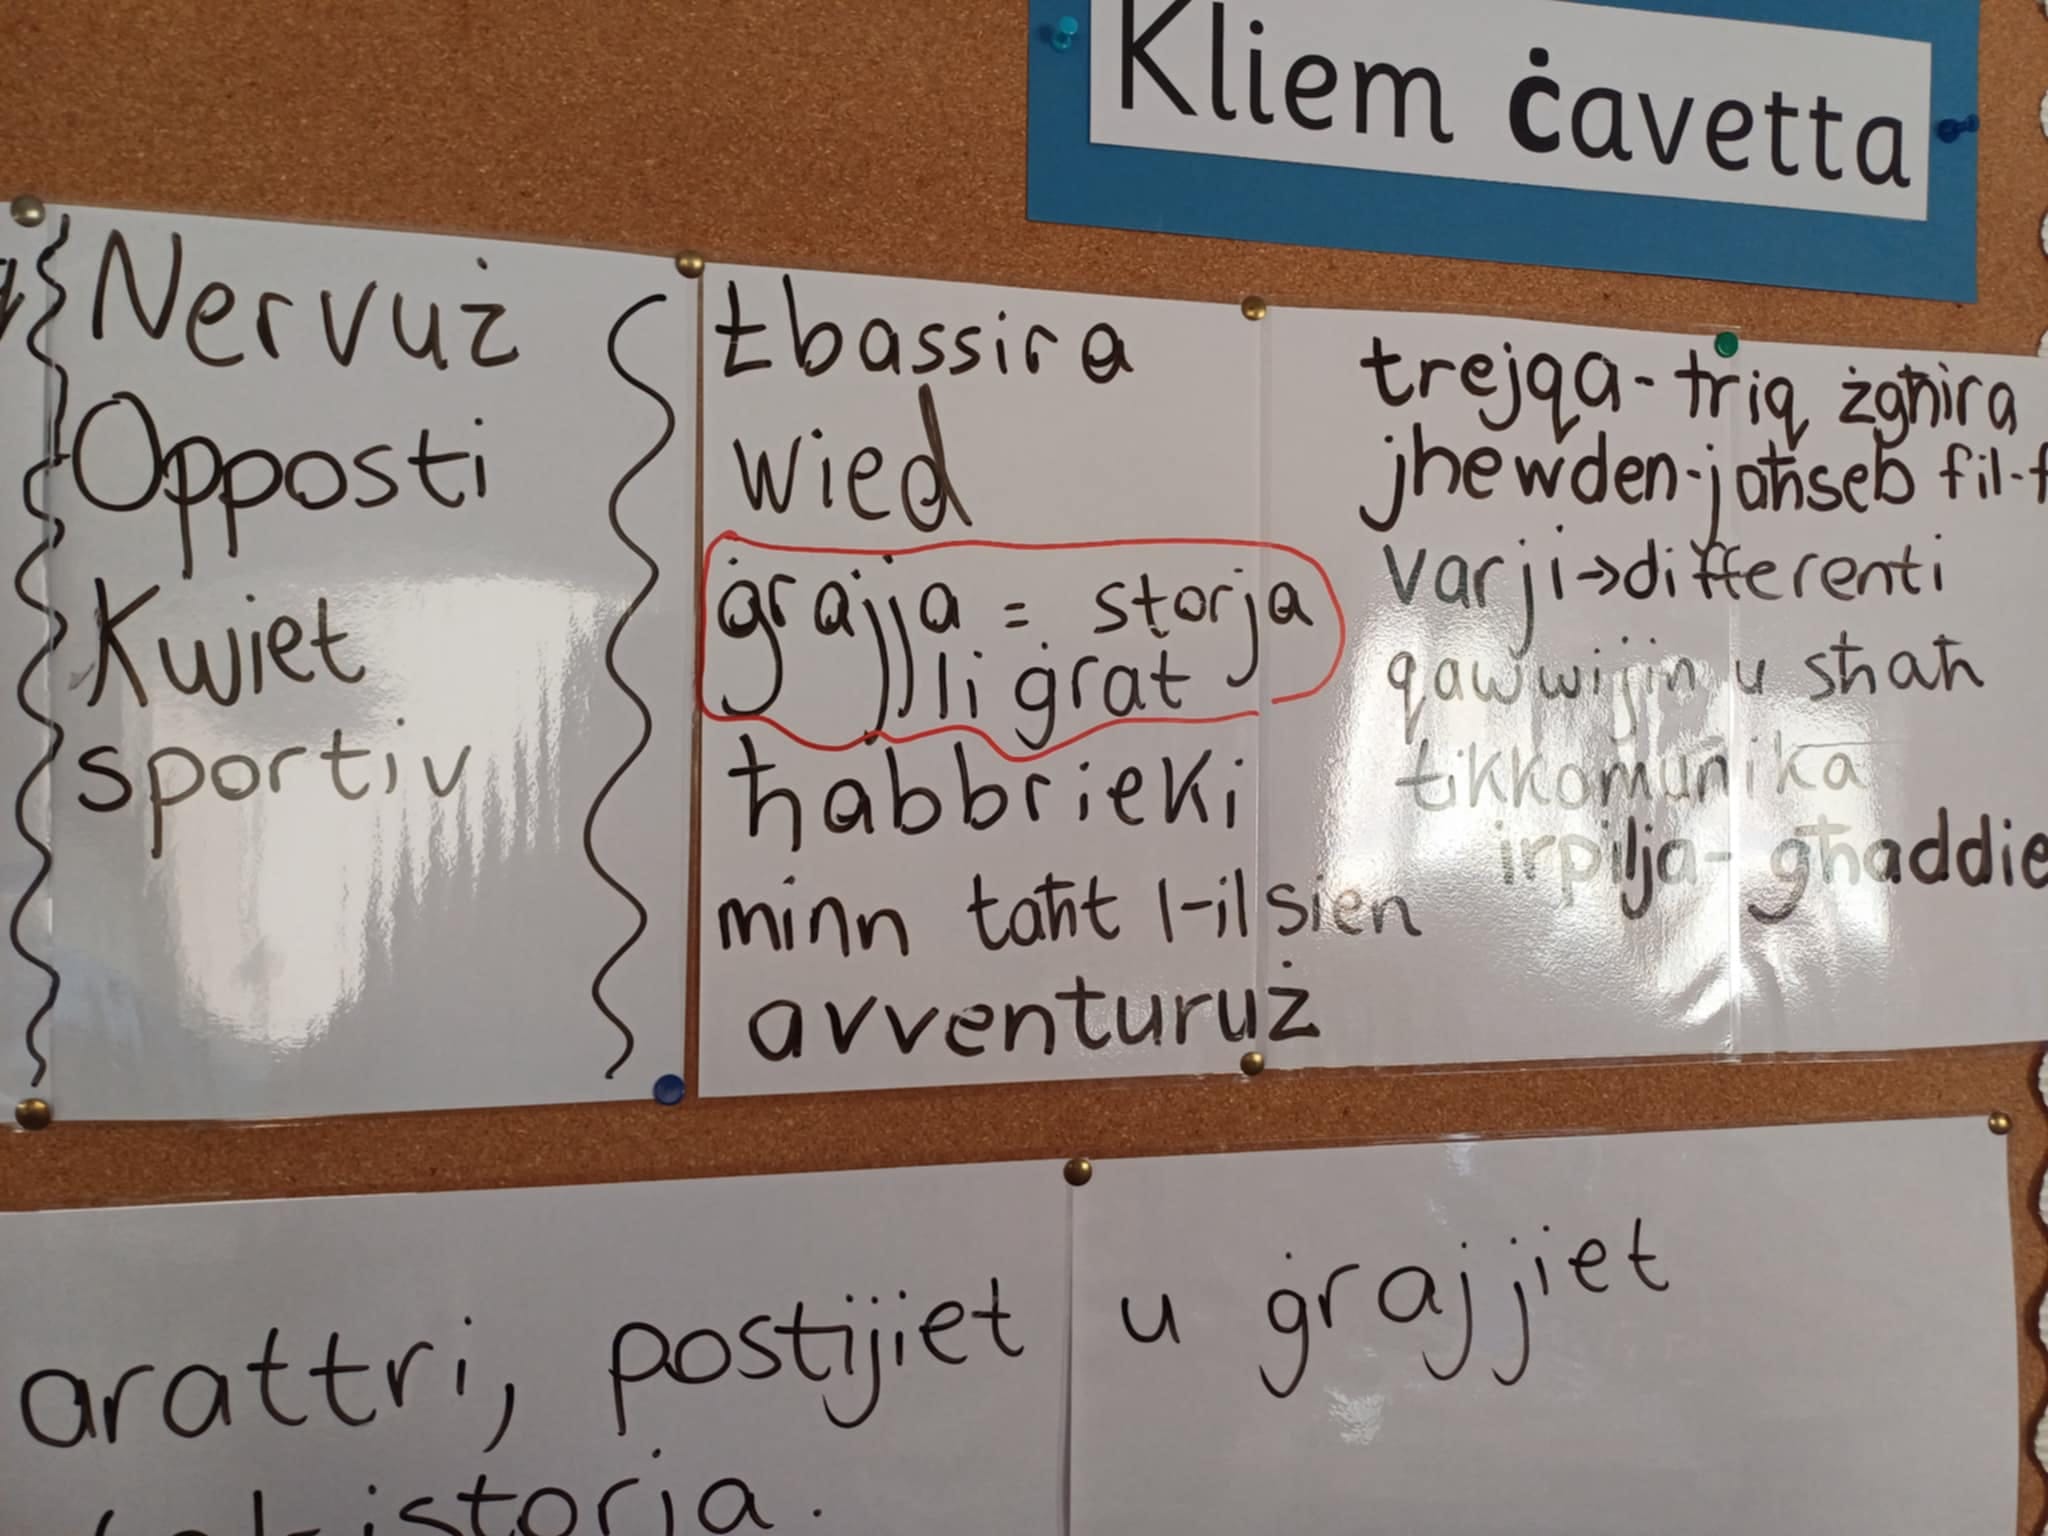 Kliem ċavetta
Nervuż
Opposti
Kwiet
sportiv
tbassira
wied
ġrajja = storja
li ġrat
ħabbrieki
minn taħt l-ilsien
avventuruż
trejqa - triq żgħira
jhewden - jaħseb fil-
varji → differenti
qawwijin u sħaħ
tikkomunika
irpilja - għaddie
arattri, postijiet u ġrajjiet
istorja.